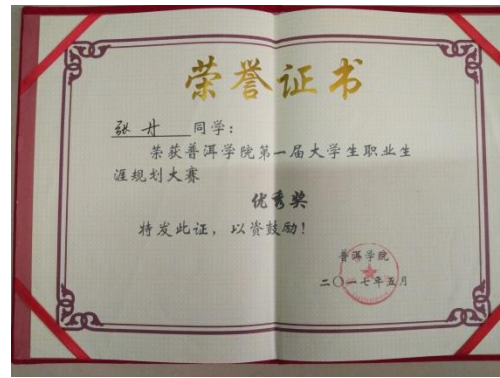 荣誉证书
张丹 同学：
荣获普洱学院第一届大学生职业生
涯规划大赛
优秀奖
特发此证，以资鼓励！
普洱学院
二〇一七年五月